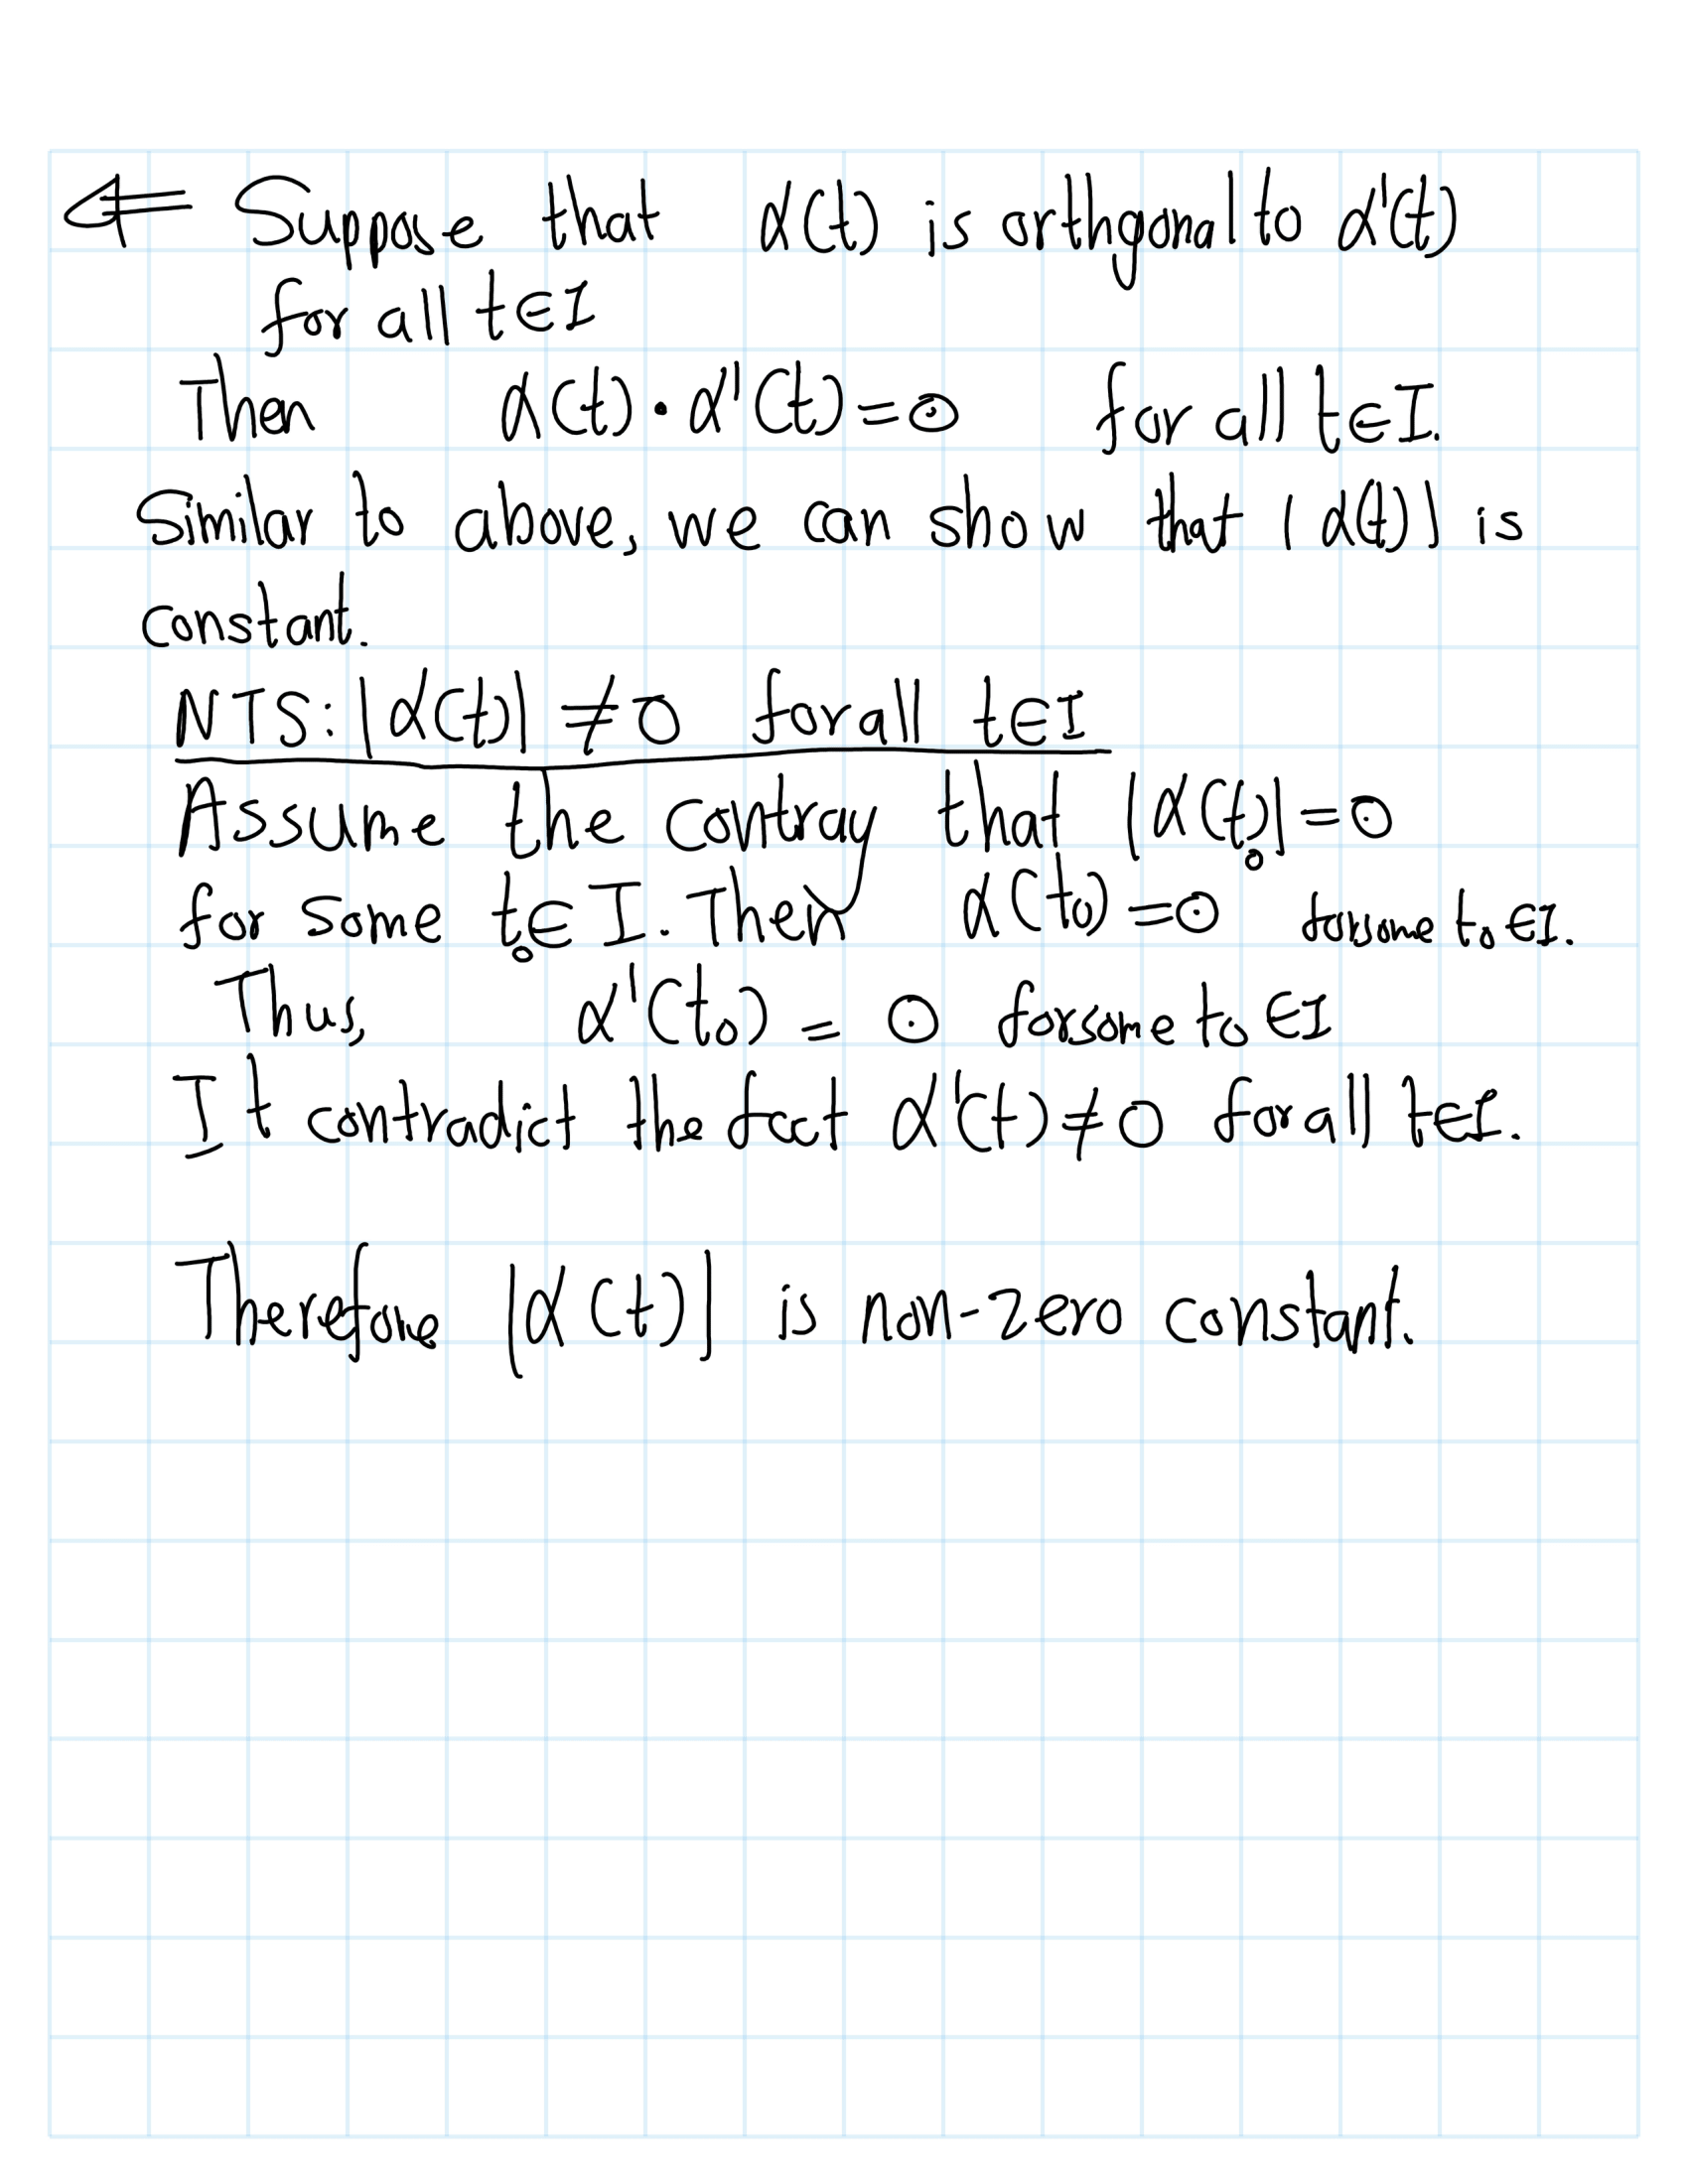 ⇐ Suppose that α(t) is orthgonal to α'(t)
for all t∈I
Then α(t)•α'(t)=0 for all t∈I.
Similar to above, we can show that |α(t)| is
constant.
NTS: |α(t)| ≠0 for all t∈I
Assume the contray that |α(t₀)|=0
for some t₀∈I. Then α(t₀)=0 for some t₀∈I.
Thus, α'(t₀) = 0 for some t₀∈I
It contradict the fact α'(t)≠0 for all t∈I.
Therefore |α(t)| is non-zero constant.